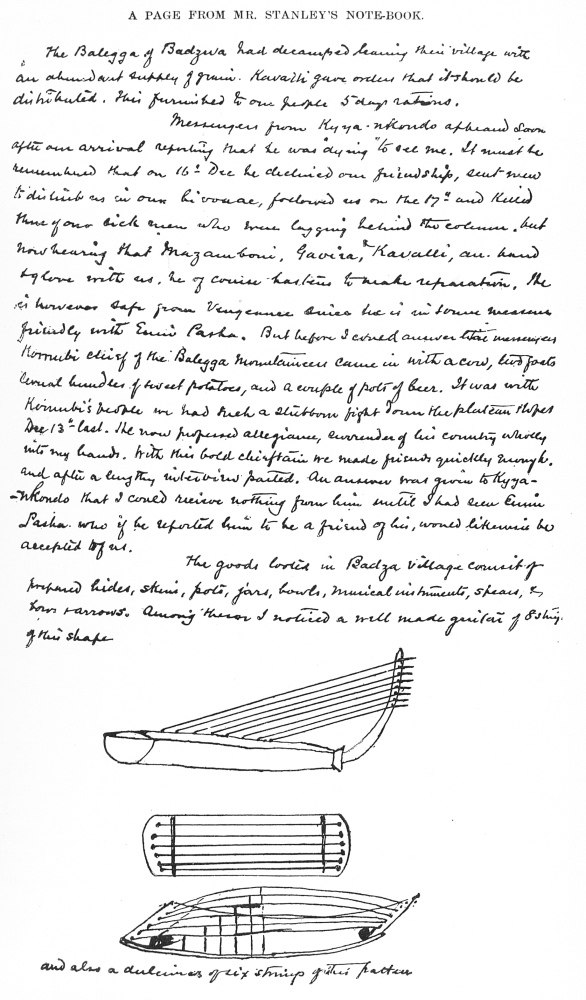 A PAGE FROM MR. STANLEY'S NOTE-BOOK.
The Balegga of Badzwa had decamped leaving their village with
an abundant supply of grain. Kavalli gave orders that it should be
distributed. This furnished to our people 5 days rations.
Messengers from Kyya-nkondo appeared soon
after our arrival reporting that he was "dying" to see me. It must be
remembered that on 16th Dec he declined our friendship, sent men
to disturb us in our bivouac, followed us on the 17th and killed
three of our sick men who were lagging behind the column. but
now hearing that Mazamboni, Gavira, & Kavalli, are hand
& glove with us, he of course hastens to make reparation. He
is however safe from Vengeance since he is in some measure
friendly with Emin Pasha. But before I could answer these messengers
Komubi chief of the Balegga Mountaineers came in with a cow, two goats
several bundles of sweet potatoes, and a couple of pots of beer. It was with
Komubi's people we had such a stubborn fight down the plateau slopes
Dec 13th last. He now proposed allegiance, surrender of his country wholly
into my hands. With this bold chieftain we made friends quickly enough.
and after a lengthy interview parted. An answer was given to Kyya-
-nkondo that I could receive nothing from him until I had seen Emin
Pasha who if he reported him to be a friend of his, would likewise be
accepted of us.
The goods looted in Badza village consist of
prepared hides, skins, pots, jars, bowls, musical instruments, spears, &
bows & arrows. Among these I noticed a well made guitar of 8 string.
of this shape
and also a dulcimer of six strings of this pattern